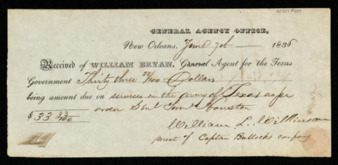 GENERAL AGENCY OFFICE,
New Orleans, June 7th 1836
Received of WILLIAM BRYAN, General Agent for the Texas
Government Thirty three Dollars
being amount due on services in the army of Texas as per
order Genl Saml Houston
$33
William L. Wilkinson
of Captain Bullocks company